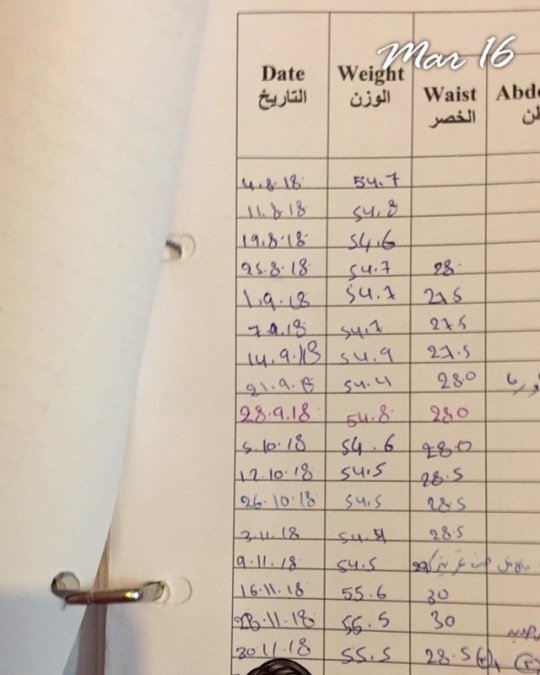 Mar 16
Date Weight
التاريخ الوزن Waist Abd
الخصر
4.8.18 54.7
11.8.18 54.8
19.8.18 54.6
25.8.18 54.7 28
1.9.18 54.7 27.5
7.9.18 54.7 27.5
14.9.18 54.9 27.5
21.9.18 54.4 28.0
28.9.18 54.8 28.0
5.10.18 54.6 28.0
12.10.18 54.5 28.5
26.10.18 54.5 28.5
3.11.18 28.5
9.11.18 54.5
16.11.18 55.6 30
23.11.18 55.5 30
30.11.18 55.5 28.5